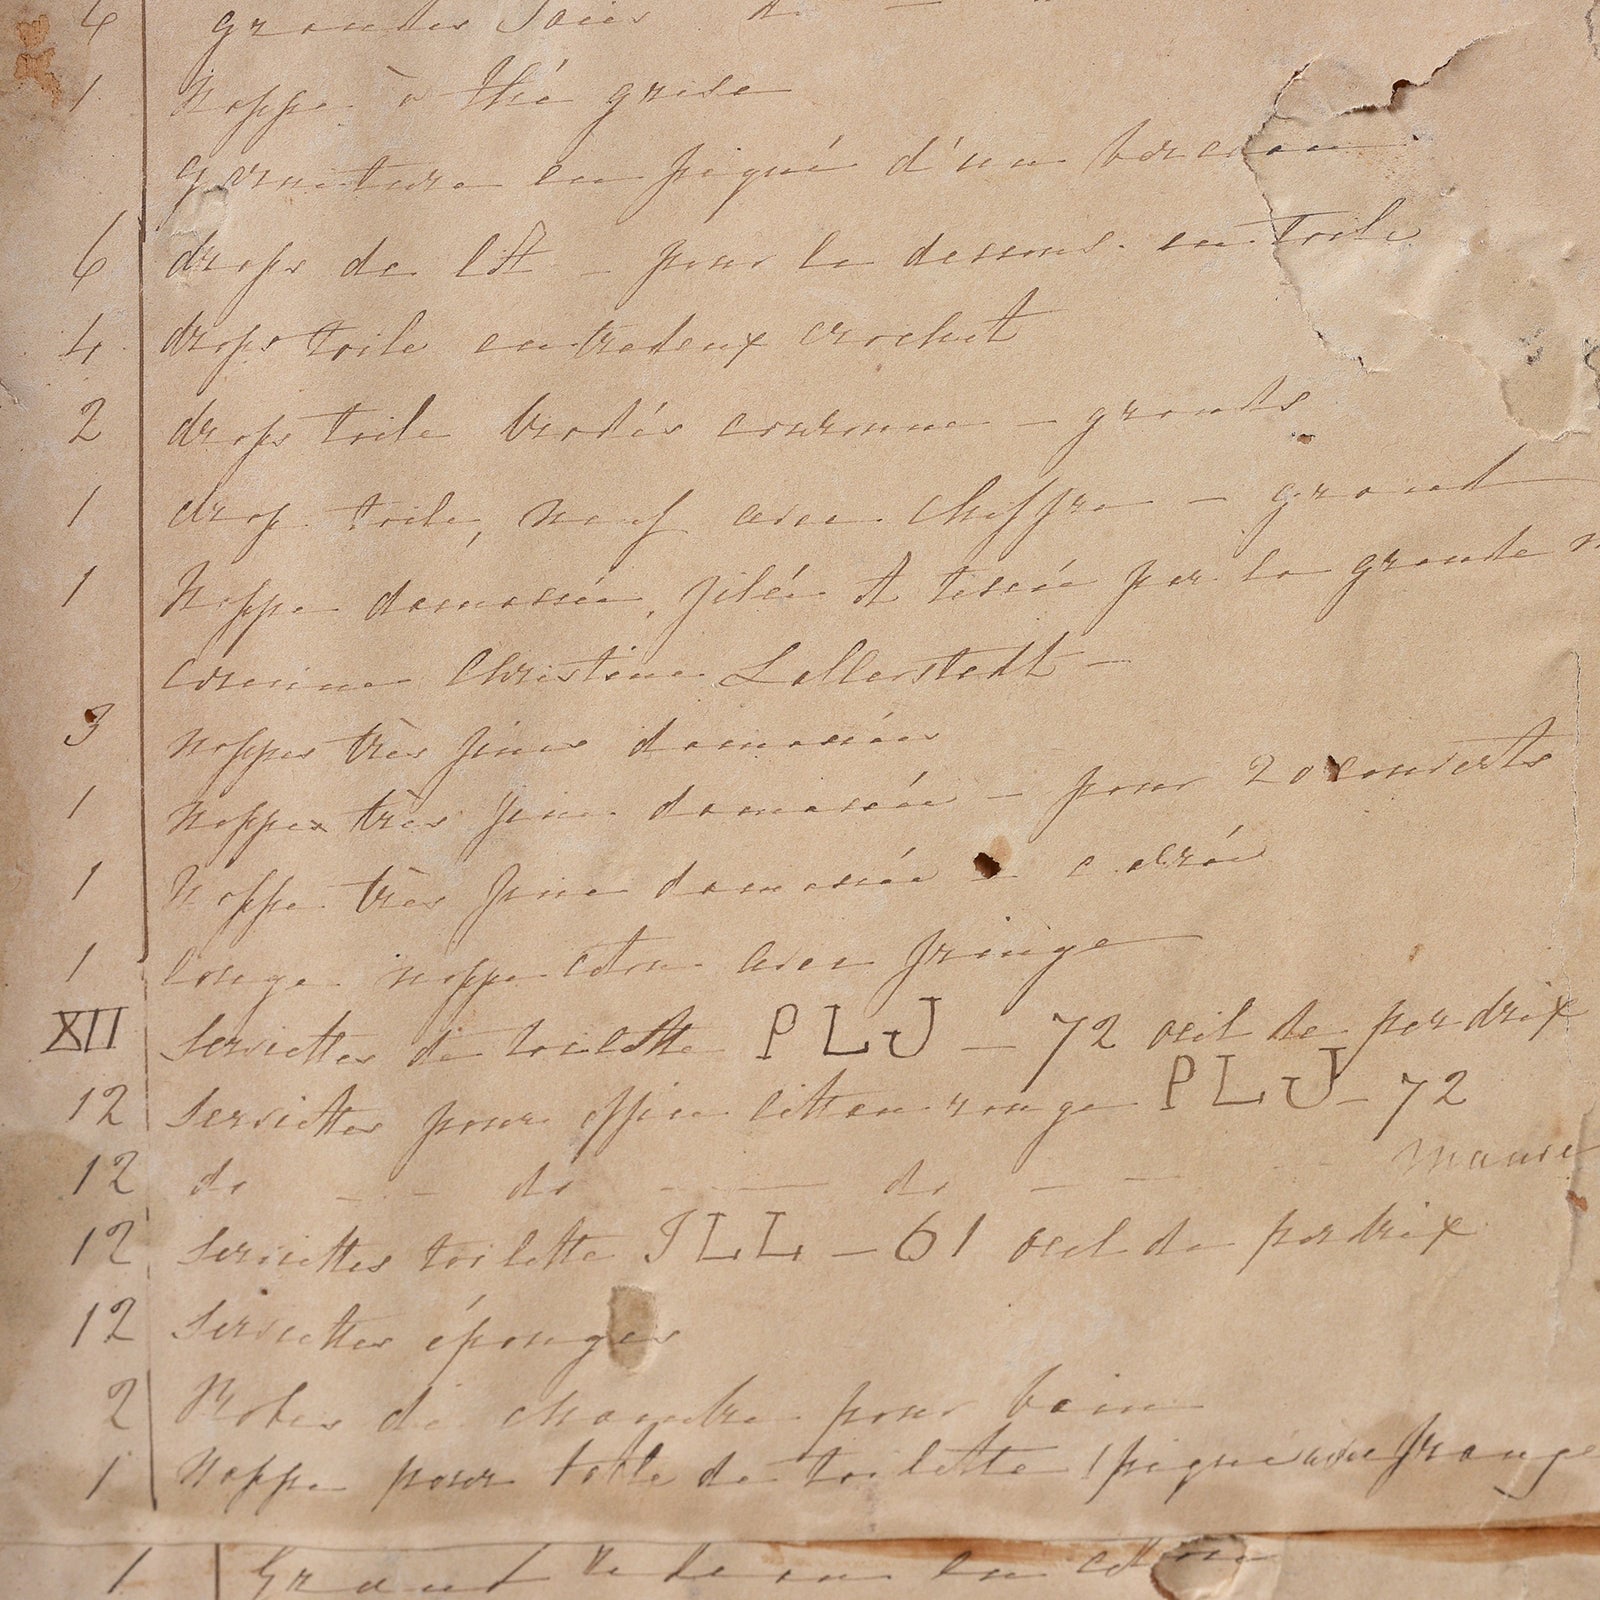 4 grandes Taies do —
1 Nappe à thé grise
garniture en piqué d'un berceau
6 draps de lit — pour le dessous en toile
4 draps toile entredeux crochet
2 draps toile brodés couronne — grands
1 drap toile, neuf avec chiffre — grand
1 Nappe damassée, filée et tissée par la grande
Christine Lallerstedt —
3 nappes très fines damassées
1 nappe très fine damassée — pour 20 couverts
1 Nappe très fine damassée — carrée
1 longe nappe coton avec frange
XII Serviettes de toilette PLJ — 72 oeil de perdrix
12 Serviettes pour office litteau rouge PLJ — 72
12 do — - do - — do — — mauve
12 Serviettes toilette JLL — 61 oeil de perdrix
12 Serviettes éponges
2 Robes de chambre pour bain
1 Nappe pour table de toilette piqué avec frange
1 Grand rideau en coton